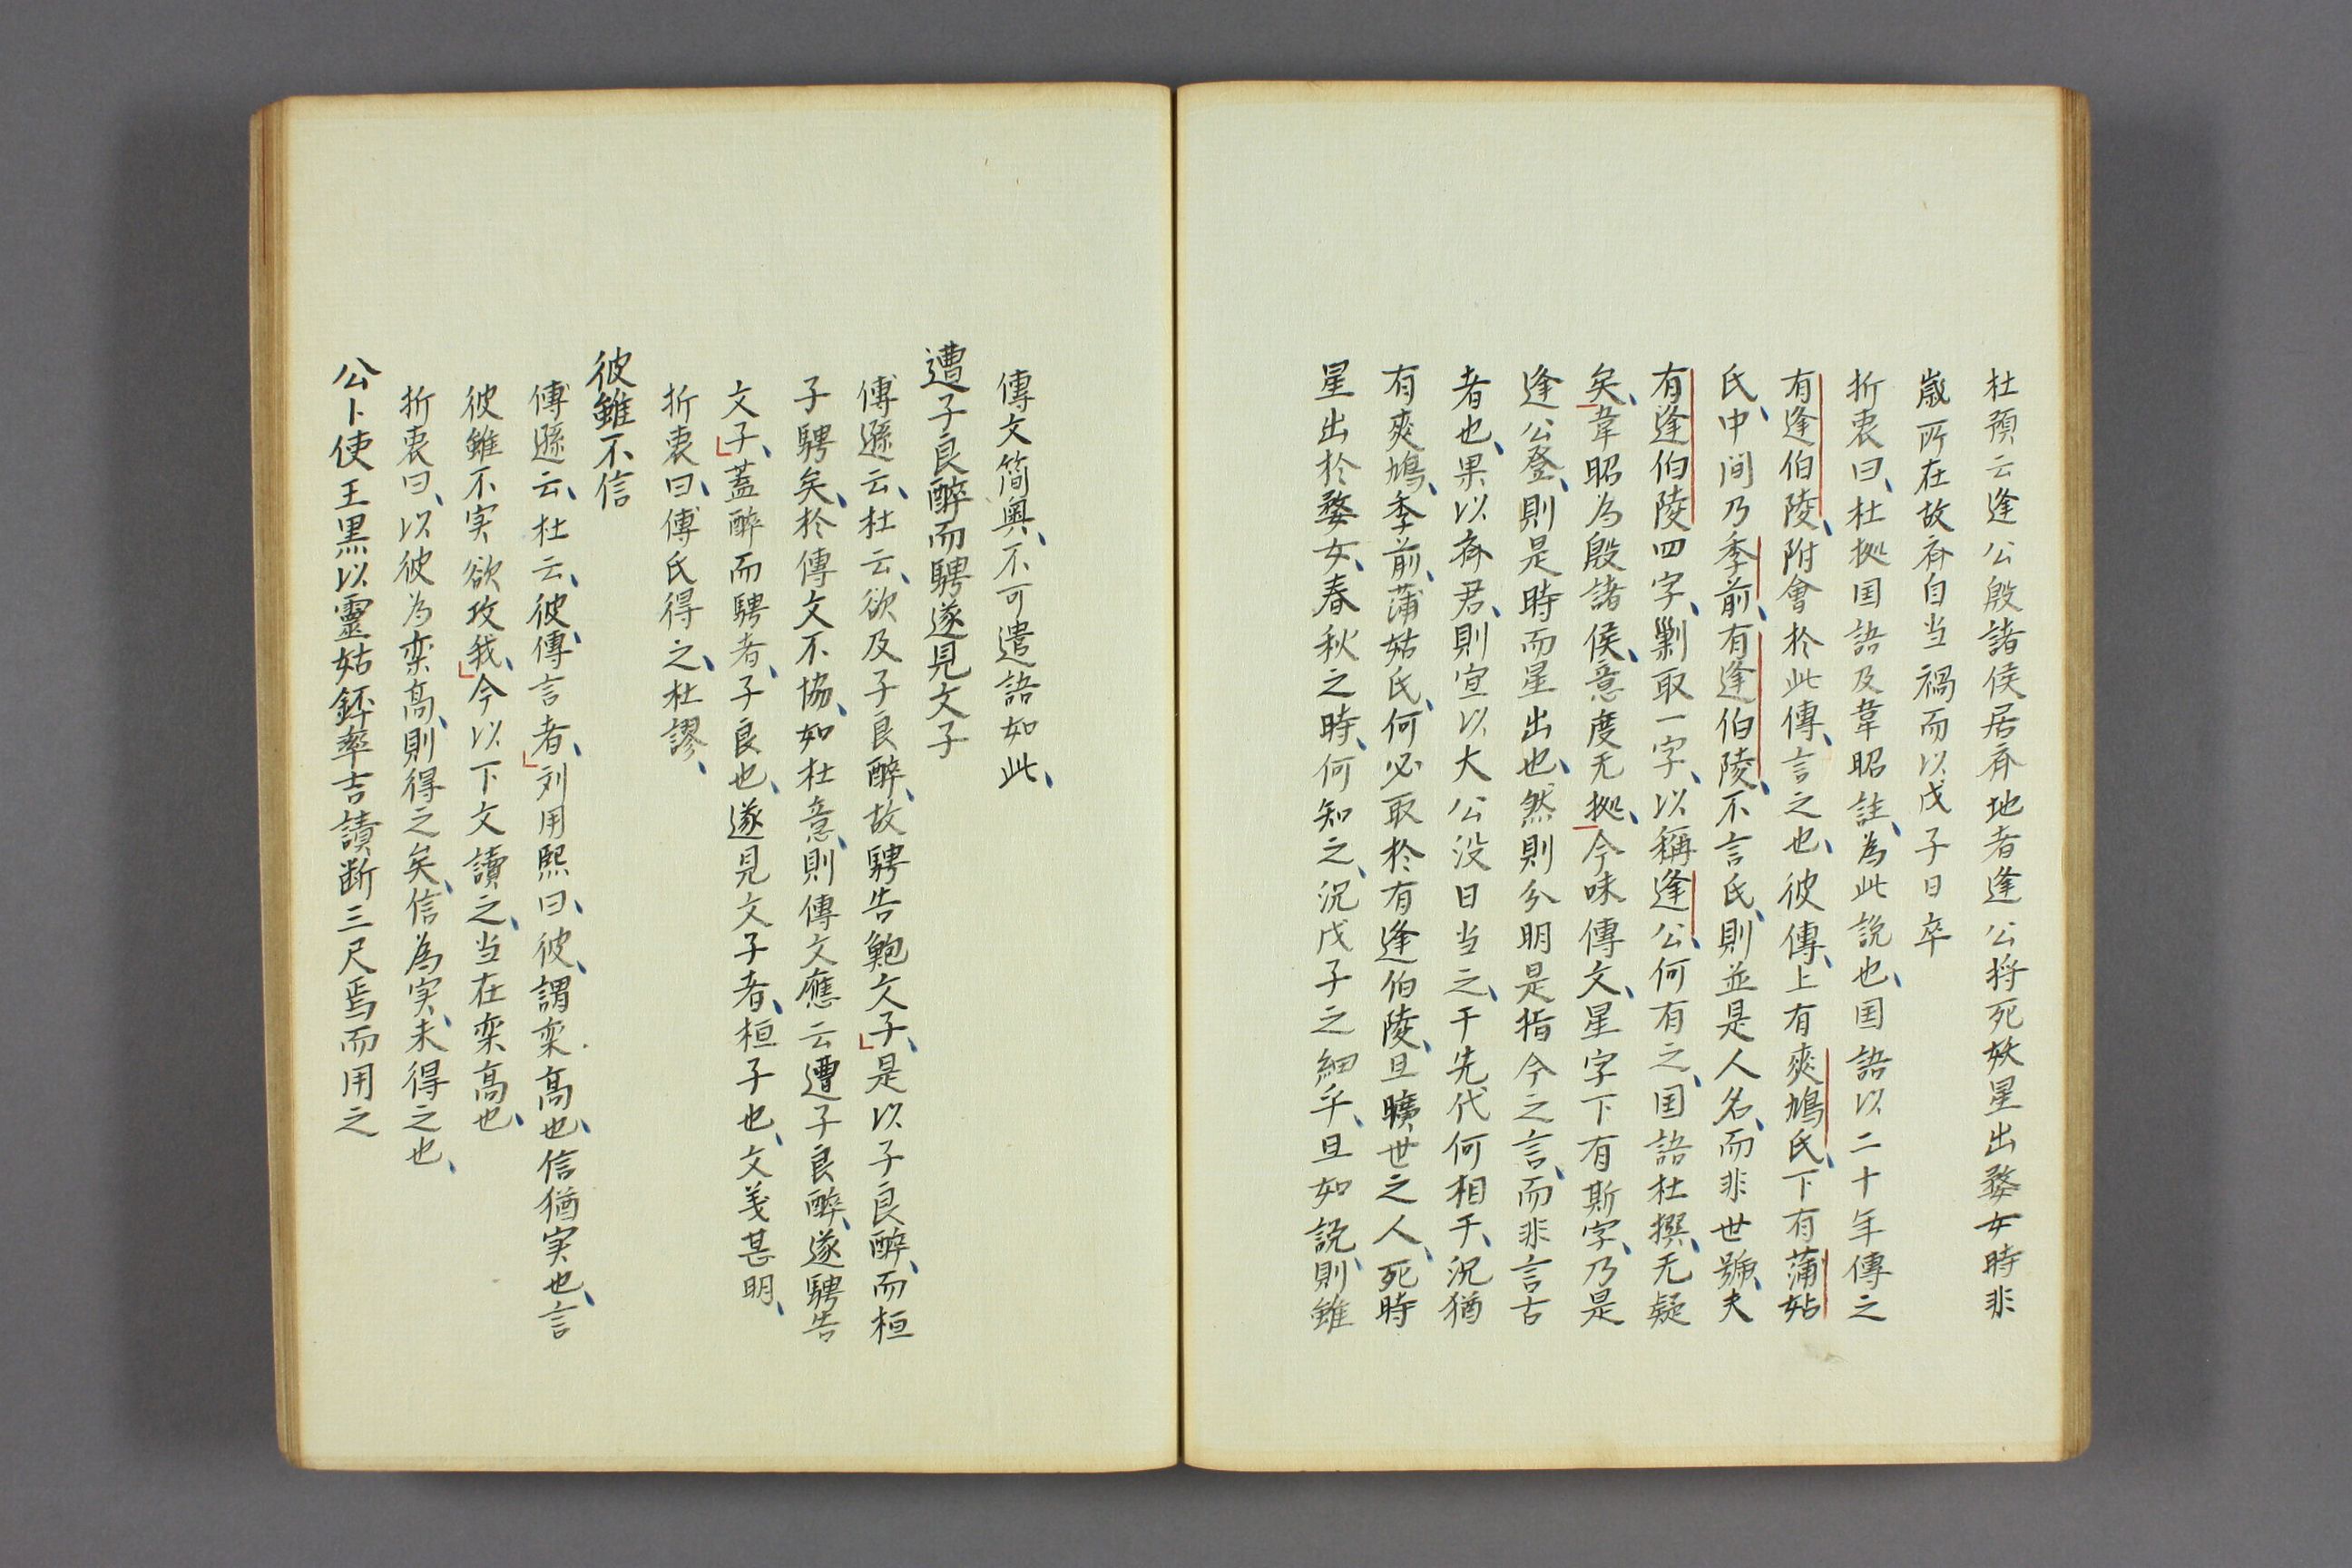 杜預云逢公殷諸侯居斉地者逢公将死妖星出婺女時非
歳所在故斉自当禍而以戊子日卒
折衷曰、杜拠国語及韋昭註、為此説也、国語以二十年傳之
有逢伯陵、附會於此傳、言之也、彼傳、上有爽鳩氏、下有蒲姑
氏、中间乃季前、有逢伯陵、不言氏、則並是人名、而非世號、夫
有逢伯陵四字、剿取一字、以稱逢公、何有之、国語杜撰、无疑
矣、韋昭為殷諸侯、意度无拠、今味傳文、星字下有斯字、乃是
逢公登、則是時而星出也、然則分明是指今之言、而非言古
者也、果以斉君、則宣以大公没日当之、于先代何相干、況猶
有爽鳩、季前、蒲姑氏、何必取於有逢伯陵、且曠世之人、死時
星出於婺女、春秋之時、何知之、況戊子之細乎、且如説、則雖
傳文简奥、不可遣語如此、
遭子良醉而騁遂見文子
傅遜云、杜云、欲及子良醉、故騁告鮑文子、是以子良醉、而桓
子騁矣、於傳文不協、如杜意、則傳文應云遭子良醉、遂騁告
文子、蓋醉而騁者、子良也、遂見文子者、桓子也、文义甚明、
折衷曰、傅氏得之、杜謬、
彼雖不信
傅遜云、杜云、彼傳言者、刘用熙曰、彼、謂栾高也、信猶実也、言
彼雖不実欲攻我、今以下文讀之、当在栾高也、
折衷曰、以彼為栾高、則得之矣、信為実、未得之也、
公卜使王黒以靈姑鉟率吉請断三尺焉而用之